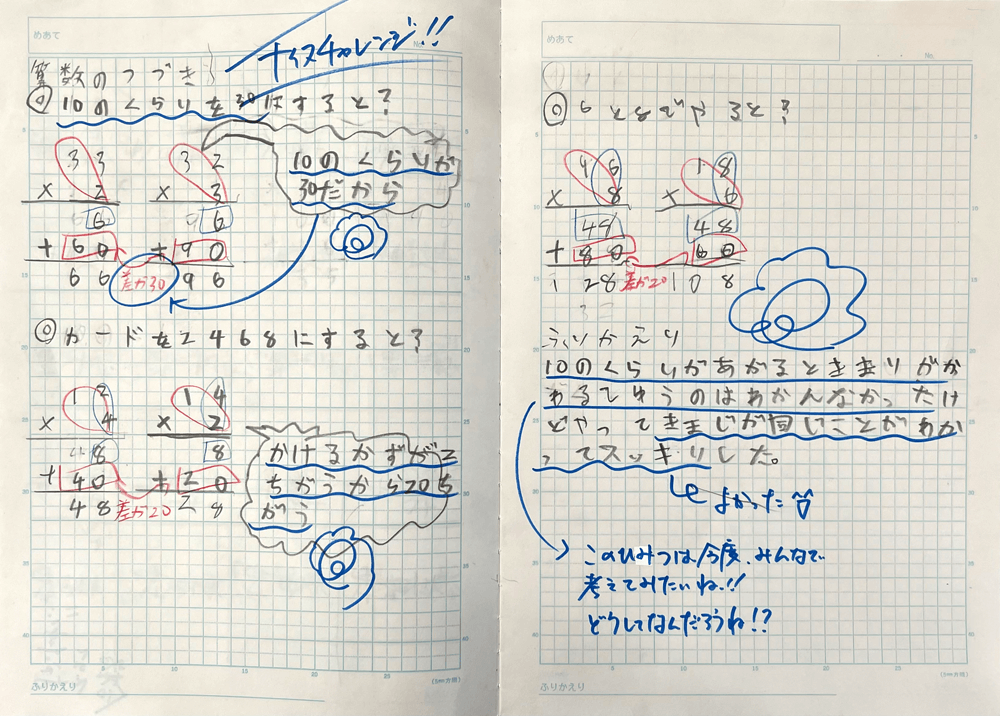 めあて
No.
ナイスチャレンジ!!
算数のつづき
◎10のくらいを30にすると?
33
× 2
6
+60
66
32
× 3
6
+90
96
差が30
10のくらいが
30だから
◎カードを2468にすると?
12
× 4
8
+40
48
14
× 2
8
+20
28
差が20
かけるかずが2
ちがうから20ち
がう
ふりかえり
(5mm方眼)
めあて
No.
◎6と8でやると?
46
× 8
48
+80
128
18
× 6
48
60
108
差が20
ふりかえり
10のくらいがあがるときまりがか
わるてゆうのはわかんなかったけ
どやってきまじが同じことがわか
ってスッキリした。
よかった
このひみつは今度、みんなで
考えてみたいね!!
どうしてなんだろうね!?
ふりかえり
(5mm方眼)